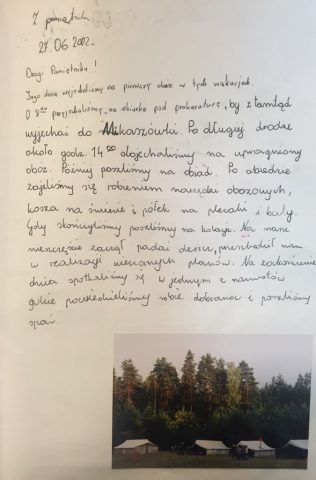 Z pamiętnika
27.06.2002.
Drogi Pamiętniku!
Tego dnia wyjechaliśmy na pierwszy obóz w tych wakacjach.
O 8:00 przyjechaliśmy na zbiórkę pod prokuraturę, by stamtąd
wyjechać do Mikaszówki. Po długiej drodze
około godz. 14:00 dojechaliśmy na upragniony
obóz. Później poszliśmy na obiad. Po obiedzie
zajęliśmy się robieniem narzędzi obozowych,
kosza na śmiecie i półek na plecaki i buty.
Gdy skończyliśmy poszliśmy na kolację. Na nasze
nieszczęście zaczął padać deszcz, przeszkodził nam
w realizacji planów. Na zakończenie
dnia spotkaliśmy się w jednym z namiotów
gdzie powiedzieliśmy sobie dobranoc i poszliśmy
spać.